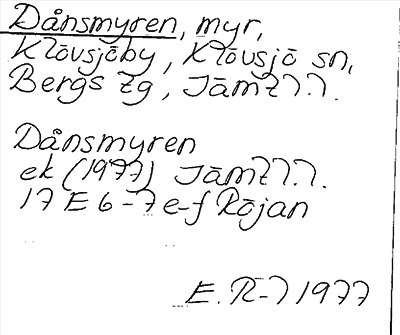 Dånsmyren, myr,
Klövsjöby, Klövsjö sn,
Bergs tg, Jämtl.l.
Dånsmyren
ek (1977) Jämtl.l.
17 E 6-7 e-f Röjan
E. R-l 1977